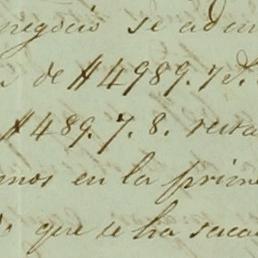 negocio se adm
de #4989.7 d.
#489.7.8. resta
mos en la prime
que se ha saca